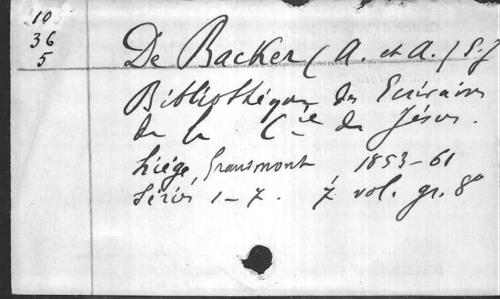 10
36
5
De Backer (A. et A.) S.J
Bibliothèque des Ecrivains
de la Cie de Jésus.
Liége, Gransmont 1853-61
Séries 1-7. 7 vol. gr. 8°